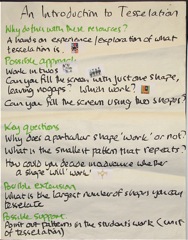 An Introduction to Tesselation
Why do this with these resources?
A hands on experience/exploration of what
tesselation is.
Possible approach
Work in twos
Can you fill the screen with just one shape,
leaving no gaps? Which work?
Can you fill the screen using two shapes?
Key questions
Why does a particular shape 'work' or not?
What is the smallest pattern that repeats?
How could you decide in advance whether
a shape 'will work'
Possible extension
What is the largest number of shapes you can
tesselate
Possible support
Point out patterns in the students work (unit
of tesselation)